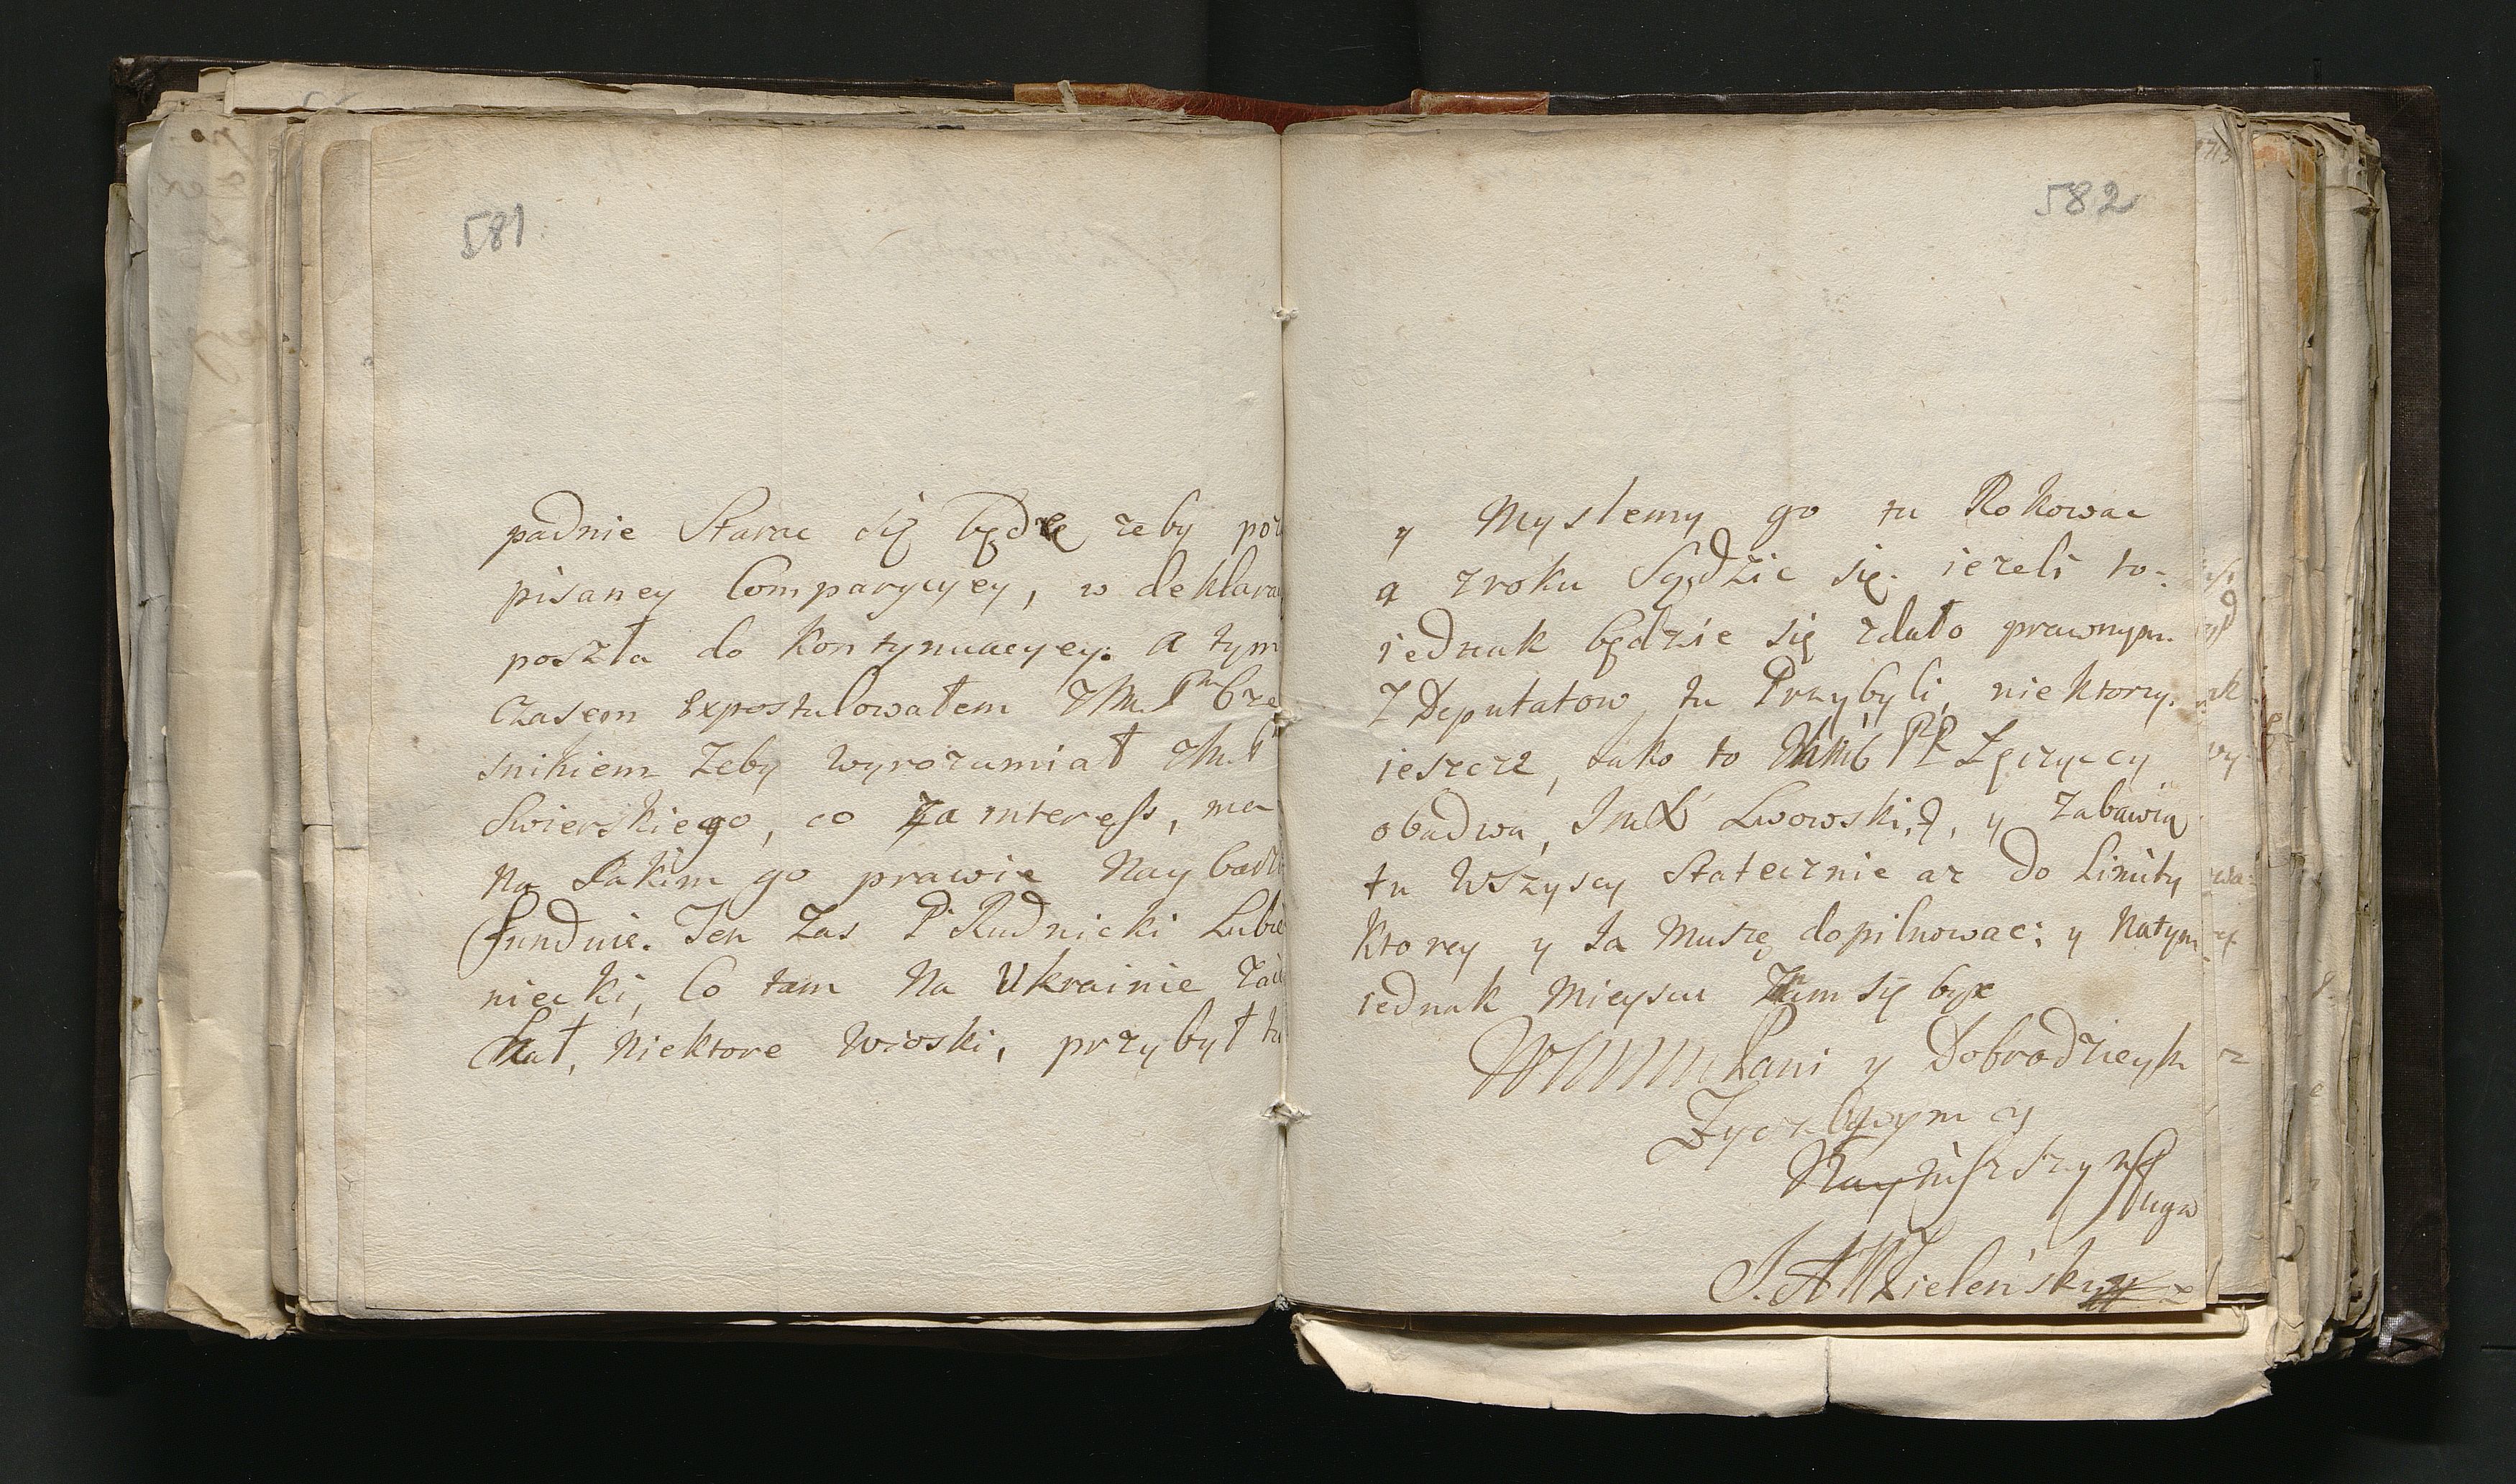 581
padnie Starac się będzę zeby poz
pisaney Comparycyey, w deklara
poszła do Kontynuacyey. a tym
Czasem Expostulowałem JM. Pm Cze
snikiem Zeby wyrozumiał JM. P
Swierskiego, co za interess, ma
Na Jakim go prawie Naybardz
funduie. Ten Zas P Rudnicki Lubie
niecki, Co tam Na Ukrainie Zaie
chał, Niektore Wioski, przybył tu
582
y Myslemy go tu Rokowac
a zroku Sądzic się. iezeli to-
iednak będzie się zdało prawnym.
Z Deputatow tu Przybyli niektorzy.
ieszcze, Jako to PP
obadwa, Lwowski, y Zabawią
tu Wszyscy Statecznie az do Limity
Ktorey y Ja Muszę dopilnowac; y Natym
iednak Mieyscu Znam się byc
Pani y Dobrodzieyki
Zyczliwym cy
Nayniszszym
Sługa
J. A. Zielenski